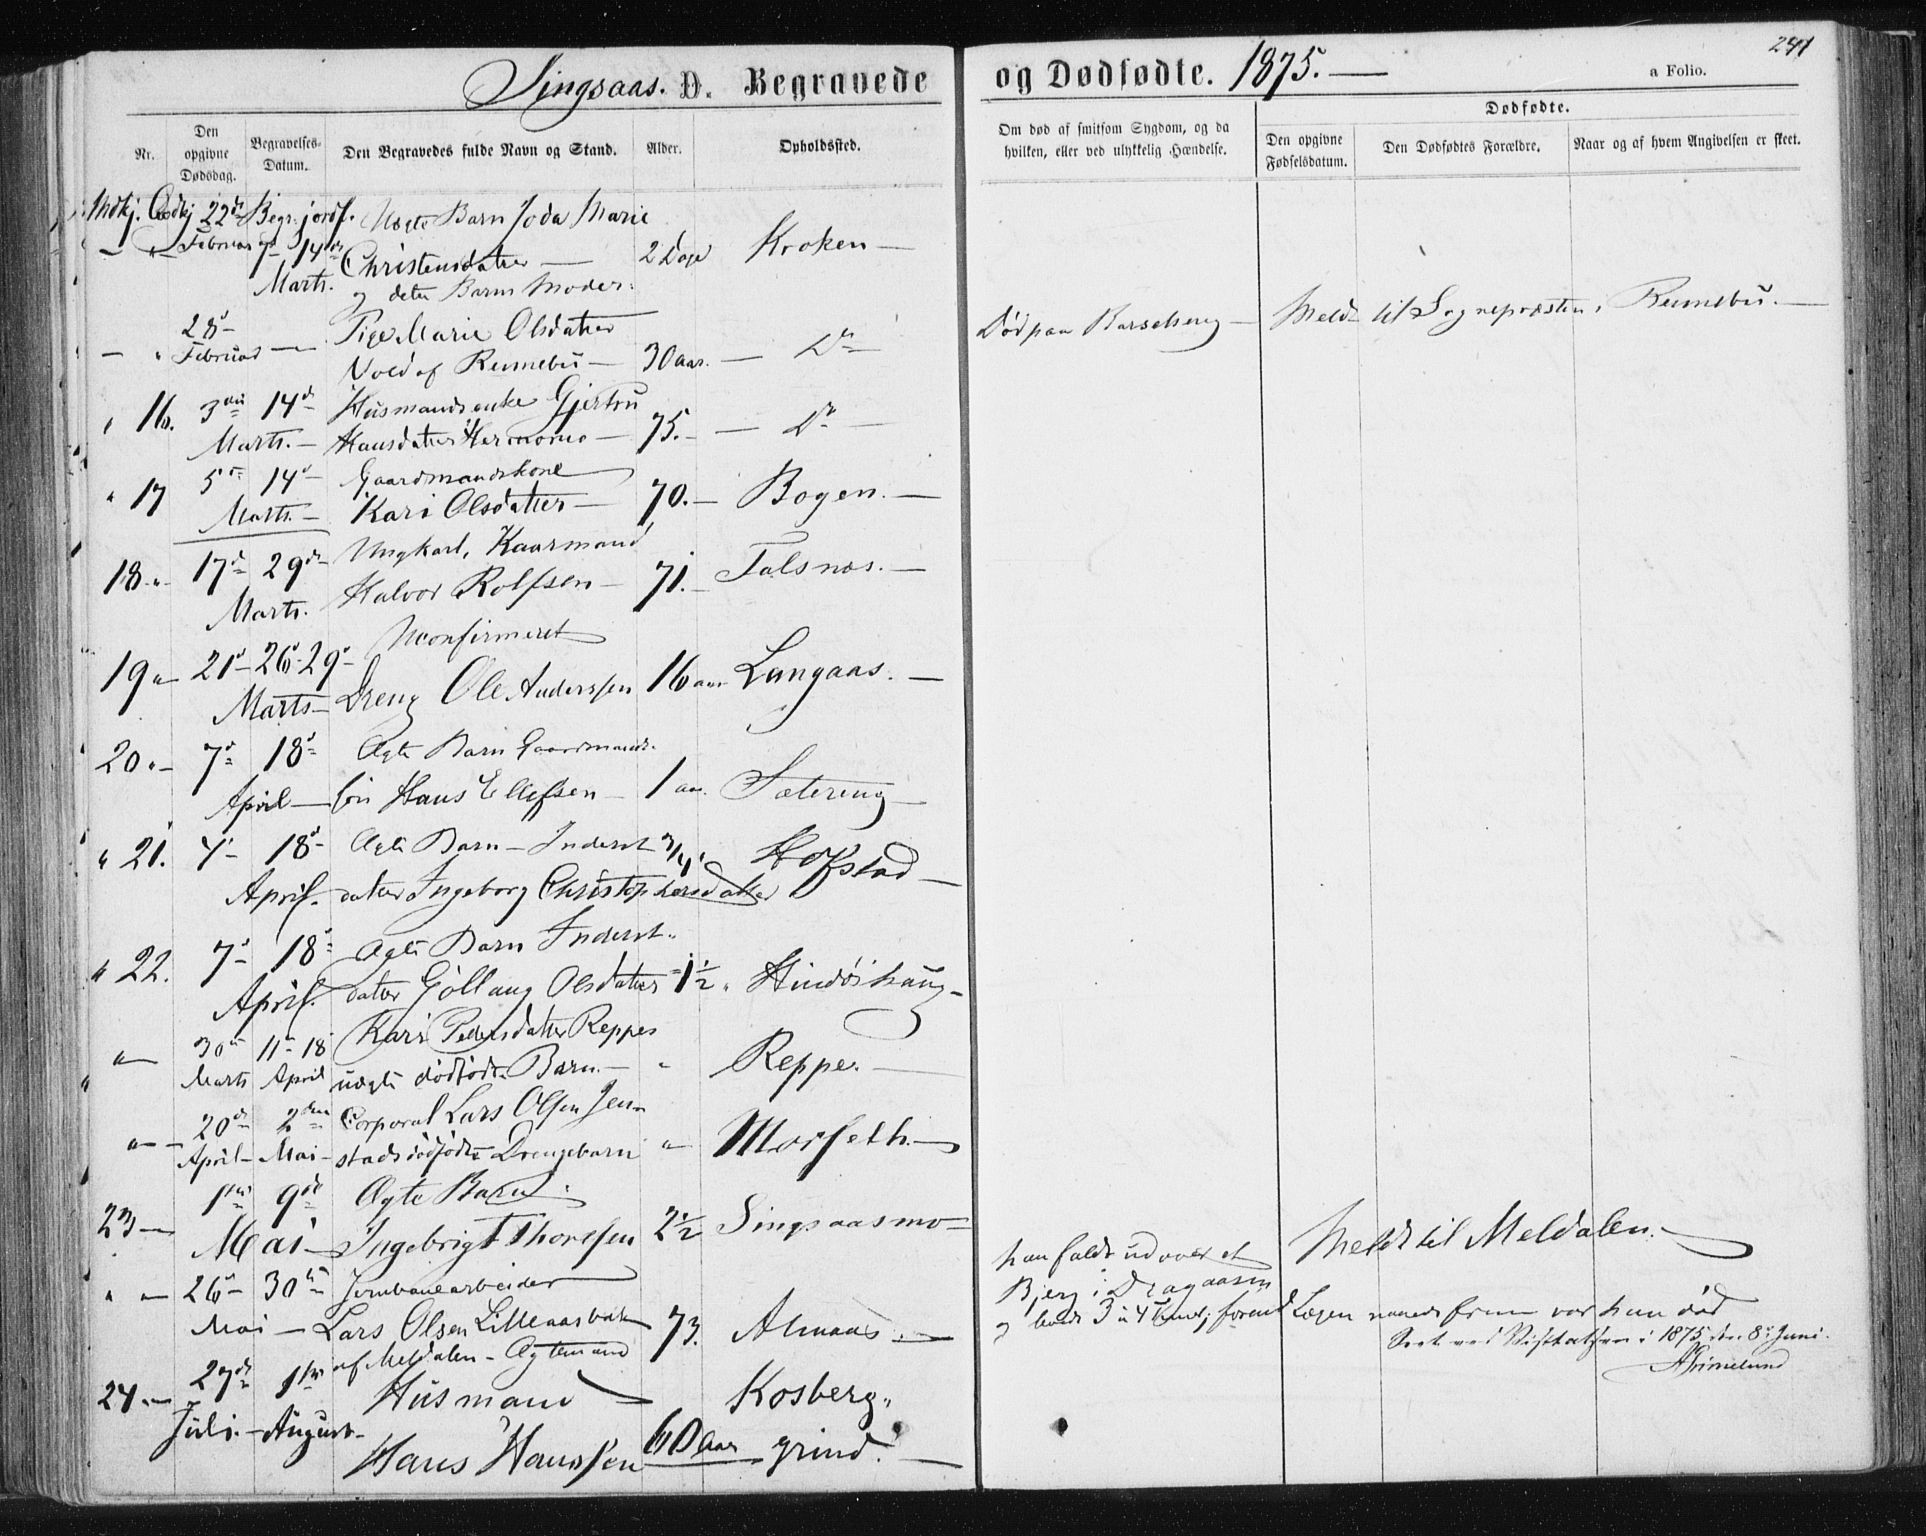 Singsaas. D. Begravede
og Dødfødte. 1875. —
a Folio.
241
Nr.
Den opgivne Dødsdag.
Begravelses-Datum.
Den Begravedes fulde Navn og Stand.
Alder.
Opholdssted.
Om død af smitsom Sygdom, og da hvilken, eller ved ulykkelig Hændelse.
Dødfødte.
Den opgivne Fødselsdatum.
Den Dødfødtes Forældre.
Naar og af hvem Angivelsen er skeet.
22de Begr. jordf. Uægte Barn Joda Marie
Februar 7 14de Christensdatter — 2 Dage Kroken —
Marts. og dets Barns Moder:
28 Pige Marie Olsdatter
Februar — Vold af Rennebu — 30 aar. — Do
Død paa Barselseng — Meldt til Sognepræsten i Rennebu. —
16. 3die 14de Husmandsenke Gjertru
Marts. — Hansdatter — 75. — Do —
17 5te 14de Gaardmandskone
Marts. — Kari Olsdatter — 70. — Bogen. —
18 17de 29de Ungkarl, Kaarmand
Marts. Halvor Rolfsen — 71. — Talsnæs. —
19 21de 26-29de Uconfirmeret
Marts — Dreng Ole Anderssen 16 aar Langaas. —
20 7de 18de Ægte Barn Gaardmands-
April — søn Hans Ellefsen — 1 aar. Sætereng —
21. 4 18de Ægte Barn — Inderst 3/4
April. datter Ingeborg Christophersdatter Hofstad —
22. 7de 18de Ægte Barn Inderst-
April. datter Gøllaug Olsdatter 1 1/2 Hindøihaug —
30te 11-18 Kari Pedersdatter Reppes
Marts April uægte dødfødt Barn. — Reppe. —
20de 2den Corporal Lars Olsen Jen-
April — Mai — stads dødfødte Drengebarn Morseth. —
1ste 9de Ægte Barn
23 — Mai — Ingebrigt Thoresen 2 1/2 Singsaasmo —
26de 30te Jernbanearbeider
Mai — Lars Olsen Lilleaasbak 73. Almaas. —
af Meldalen — Ægtemand
han faldt udover et
Bjerg i Dragaasen
og levede 3 a 4 Timer; forend Lægen naaede frem var han død
Meldt til Meldalen. —
Seet ved Visitatsen i 1875 den 8de Juni.
AGrimelund
24. — 27de 1ste Husmand Kosberg-
Juli. — August — Hans Hanssen 60 aar grind. —